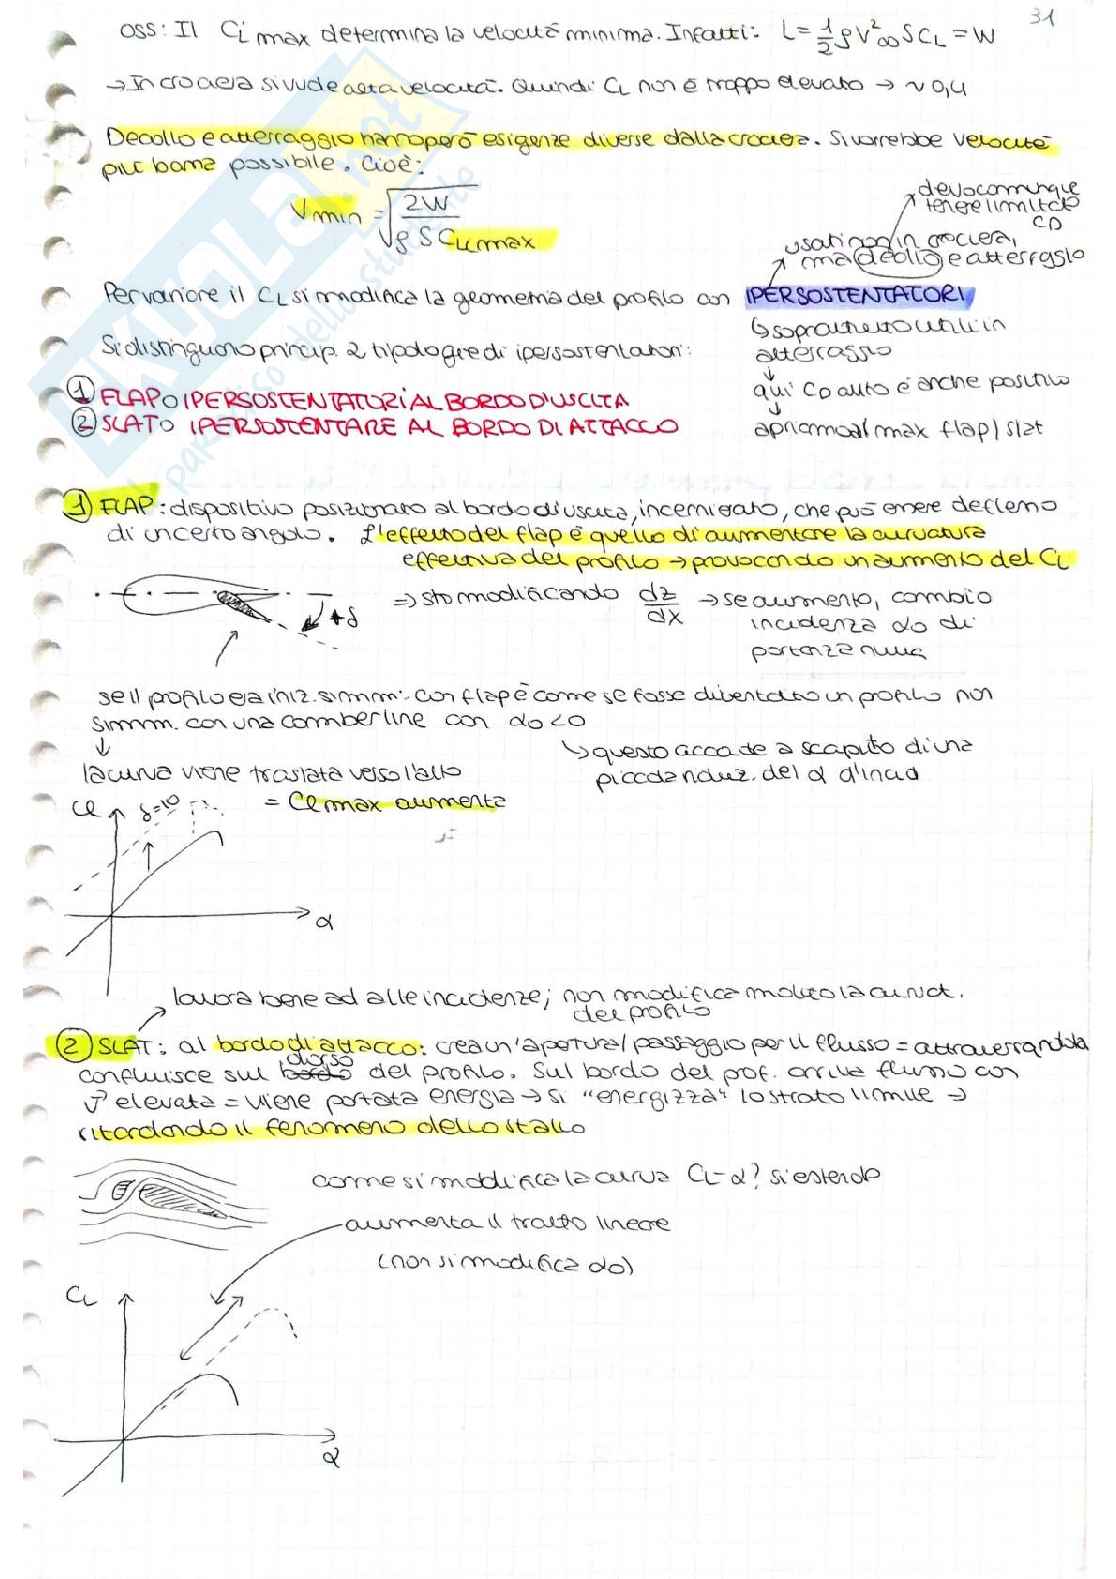 31
OSS: Il CL max determina la velocità minima. Infatti: L = 1/2 ρ V²∞ S CL = W
→ In crociera si vuole alta velocità. Quindi CL non è troppo elevato → ~ 0,4
Decollo e atterraggio hanno però esigenze diverse dalla crociera. Si vorrebbe velocità
più bassa possibile. Cioè:
Vmin = √(2W / ρ S CL,max)
devo comunque
tenere limitato
CD
usati non in crociera,
ma decollo e atterraggio
Per variare il CL si modifica la geometria del profilo con IPERSOSTENTATORI
↳ soprattutto utili in
atterraggio
↓
qui CD alto è anche positivo
↓
apriamo al max flap/slat
Si distinguono princip. 2 tipologie di ipersostentatori:
① FLAP O IPERSOSTENTATORI AL BORDO D'USCITA
② SLAT O IPERSOSTENTARE AL BORDO DI ATTACCO
① FLAP: dispositivo posizionato al bordo d'uscita, incernierato, che può essere deflesso
di un certo angolo. L'effetto del flap è quello di aumentare la curvatura
effettiva del profilo → provocando un aumento del CL
+δ
⇒ sto modificando dz/dx → se aumento, cambio
incidenza α0 di
portanza nulla
se il profilo era iniz. simm. con flap è come se fosse diventato un profilo non
simm. con una camber line con α0 < 0
↓
↳ questo accade a scapito di una
piccola riduz. del α d'incid
la curva viene traslata verso l'alto
= Cl max aumenta
Cl
δ=10
α
lavora bene ad alte incidenze; non modifica molto la curvat.
del profilo
② SLAT: al bordo di attacco: crea un'apertura/passaggio per il flusso = attraversandola
confluisce sul bordo dorso del profilo. Sul bordo del prof. arriva flusso con
v elevata = viene portata energia → si "energizza" lo strato limite →
ritardando il fenomeno dello stallo
come si modifica la curva CL-α? si estende
aumenta il tratto lineare
(non si modifica α0)
CL
α